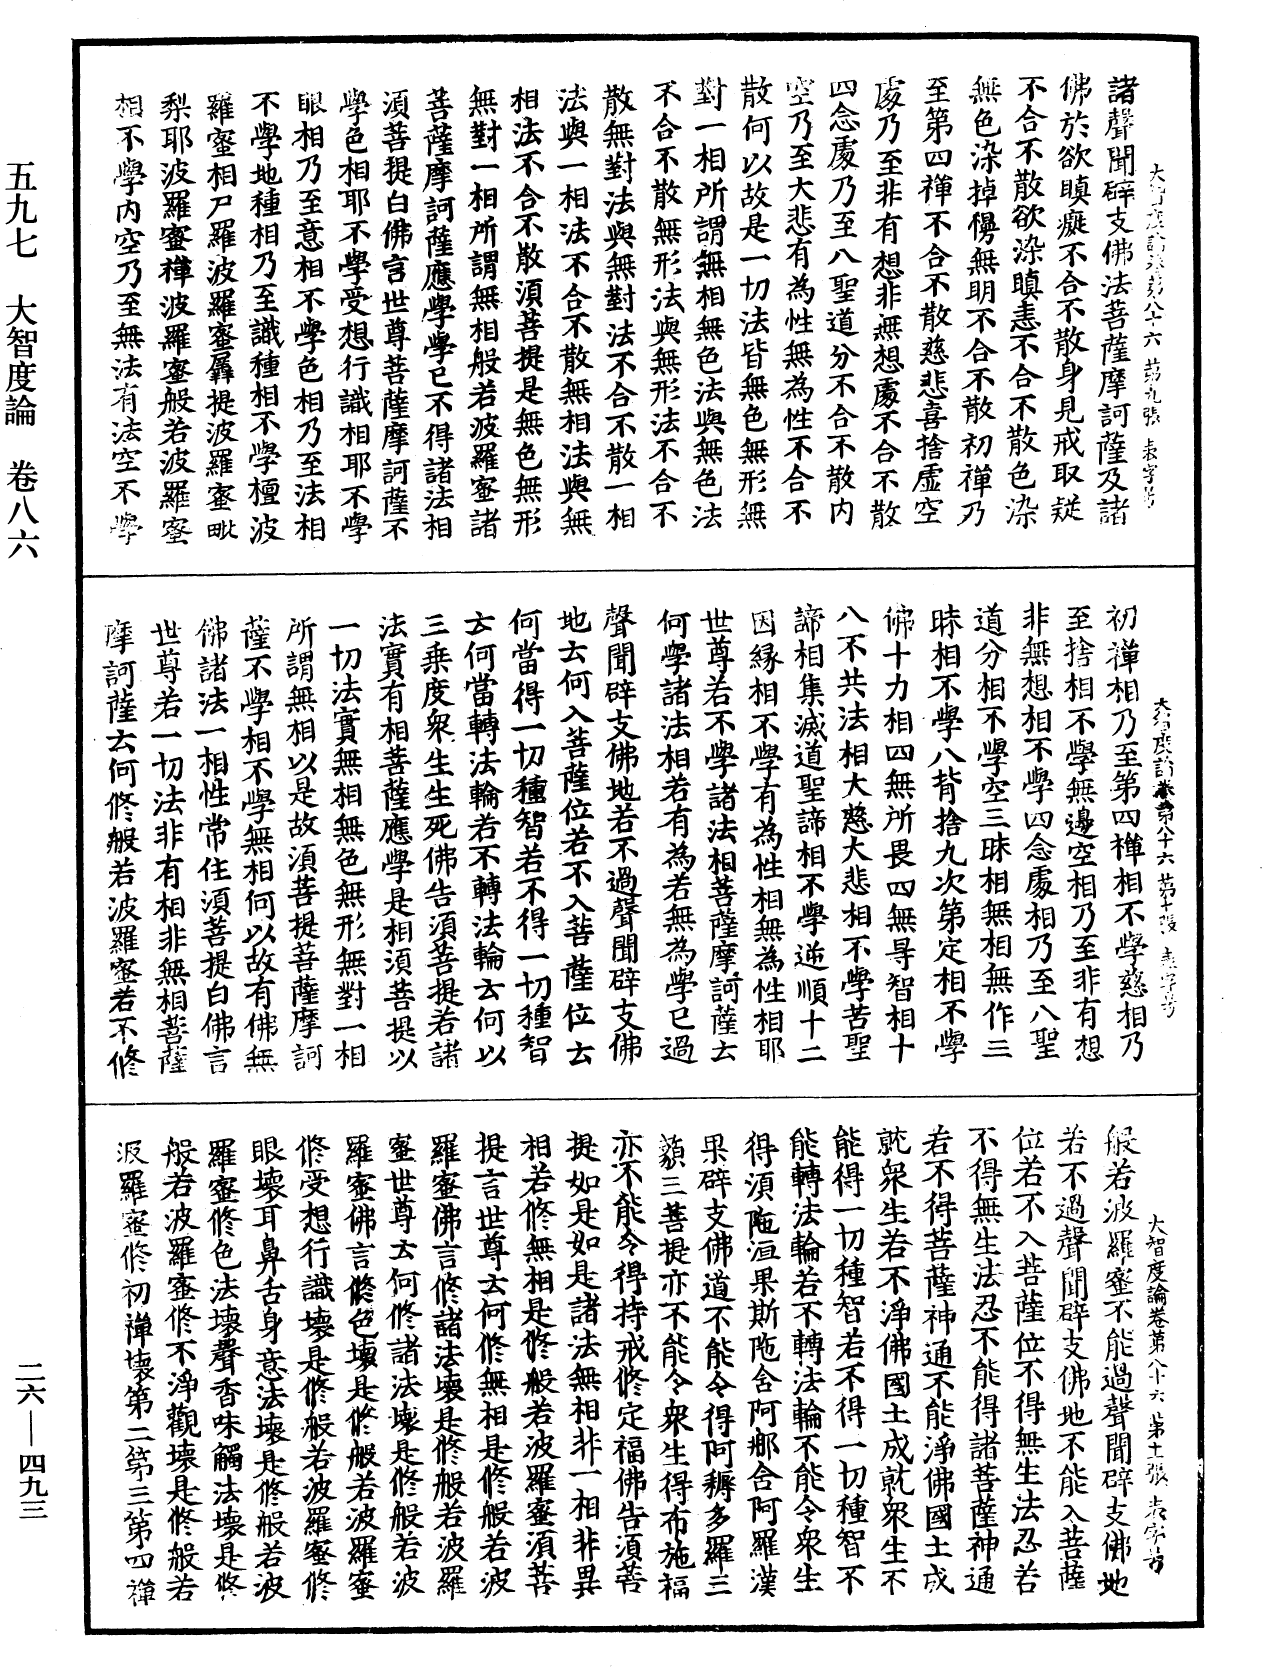 諸聲聞辟支佛法菩薩摩訶薩及諸
佛於欲瞋癡不合不散身見戒取疑
不合不散欲染瞋恚不合不散色染
無色染掉慢無明不合不散初禪乃
至第四禪不合不散慈悲喜捨虛空
處乃至非有想非無想處不合不散
四念處乃至八聖道分不合不散內
空乃至大悲有為性無為性不合不
散何以故是一切法皆無色無形無
對一相所謂無相無色法與無色法
不合不散無形法與無形法不合不
散無對法與無對法不合不散一相
法與一相法不合不散無相法與無
相法不合不散須菩提是無色無形
無對一相所謂無相般若波羅蜜諸
菩薩摩訶薩應學學已不得諸法相
須菩提白佛言世尊菩薩摩訶薩不
學色相耶不學受想行識相耶不學
眼相乃至意相不學色相乃至法相
不學地種相乃至識種相不學檀波
羅蜜相尸羅波羅蜜羼提波羅蜜毗
梨耶波羅蜜禪波羅蜜般若波羅蜜
相不學內空乃至無法有法空不學
大智度論卷第八十六 第十張 
初禪相乃至第四禪相不學慈相乃
至捨相不學無邊空相乃至非有想
非無想相不學四念處相乃至八聖
道分相不學空三昧相無相無作三
昧相不學八背捨九次第定相不學
佛十力相四無所畏四無㝵智相十
八不共法相大慈大悲相不學苦聖
諦相集滅道聖諦相不學逆順十二
因緣相不學有為性相無為性相耶
世尊若不學諸法相菩薩摩訶薩云
何學諸法相若有為若無為學已過
聲聞辟支佛地若不過聲聞辟支佛
地云何入菩薩位若不入菩薩位云
何當得一切種智若不得一切種智
云何當轉法輪若不轉法輪云何以
三乘度眾生生死佛告須菩提若諸
法實有相菩薩應學是相須菩提以
一切法實無相無色無形無對一相
所謂無相以是故須菩提菩薩摩訶
薩不學相不學無相何以故有佛無
佛諸法一相性常住須菩提白佛言
世尊若一切法非有相非無相菩薩
摩訶薩云何修般若波羅蜜若不修
大智度論卷第八十六 第十一張 
般若波羅蜜不能過聲聞辟支佛地
若不過聲聞辟支佛地不能入菩薩
位若不入菩薩位不得無生法忍若
不得無生法忍不能得諸菩薩神通
若不得菩薩神通不能淨佛國土成
就眾生若不淨佛國土成就眾生不
能得一切種智若不得一切種智不
能轉法輪若不轉法輪不能令眾生
得須陁洹果斯陁含阿那含阿羅漢
果辟支佛道不能令得阿耨多羅三
藐三菩提亦不能令眾生得布施福
亦不能令得持戒修定福佛告須菩
提如是如是諸法無相非一相非異
相若修無相是修般若波羅蜜須菩
提言世尊云何修無相是修般若波
羅蜜佛言修諸法壞是修般若波羅
蜜世尊云何修諸法壞是修般若波
羅蜜佛言修色壞是修般若波羅蜜
修受想行識壞是修般若波羅蜜修
眼壞耳鼻舌身意法壞是修般若波
羅蜜修色法壞聲香味觸法壞是修
般若波羅蜜修不淨觀壞是修般若
波羅蜜修初禪壞第二第三第四禪
五九七 大智度論 卷八六
二六—四九三